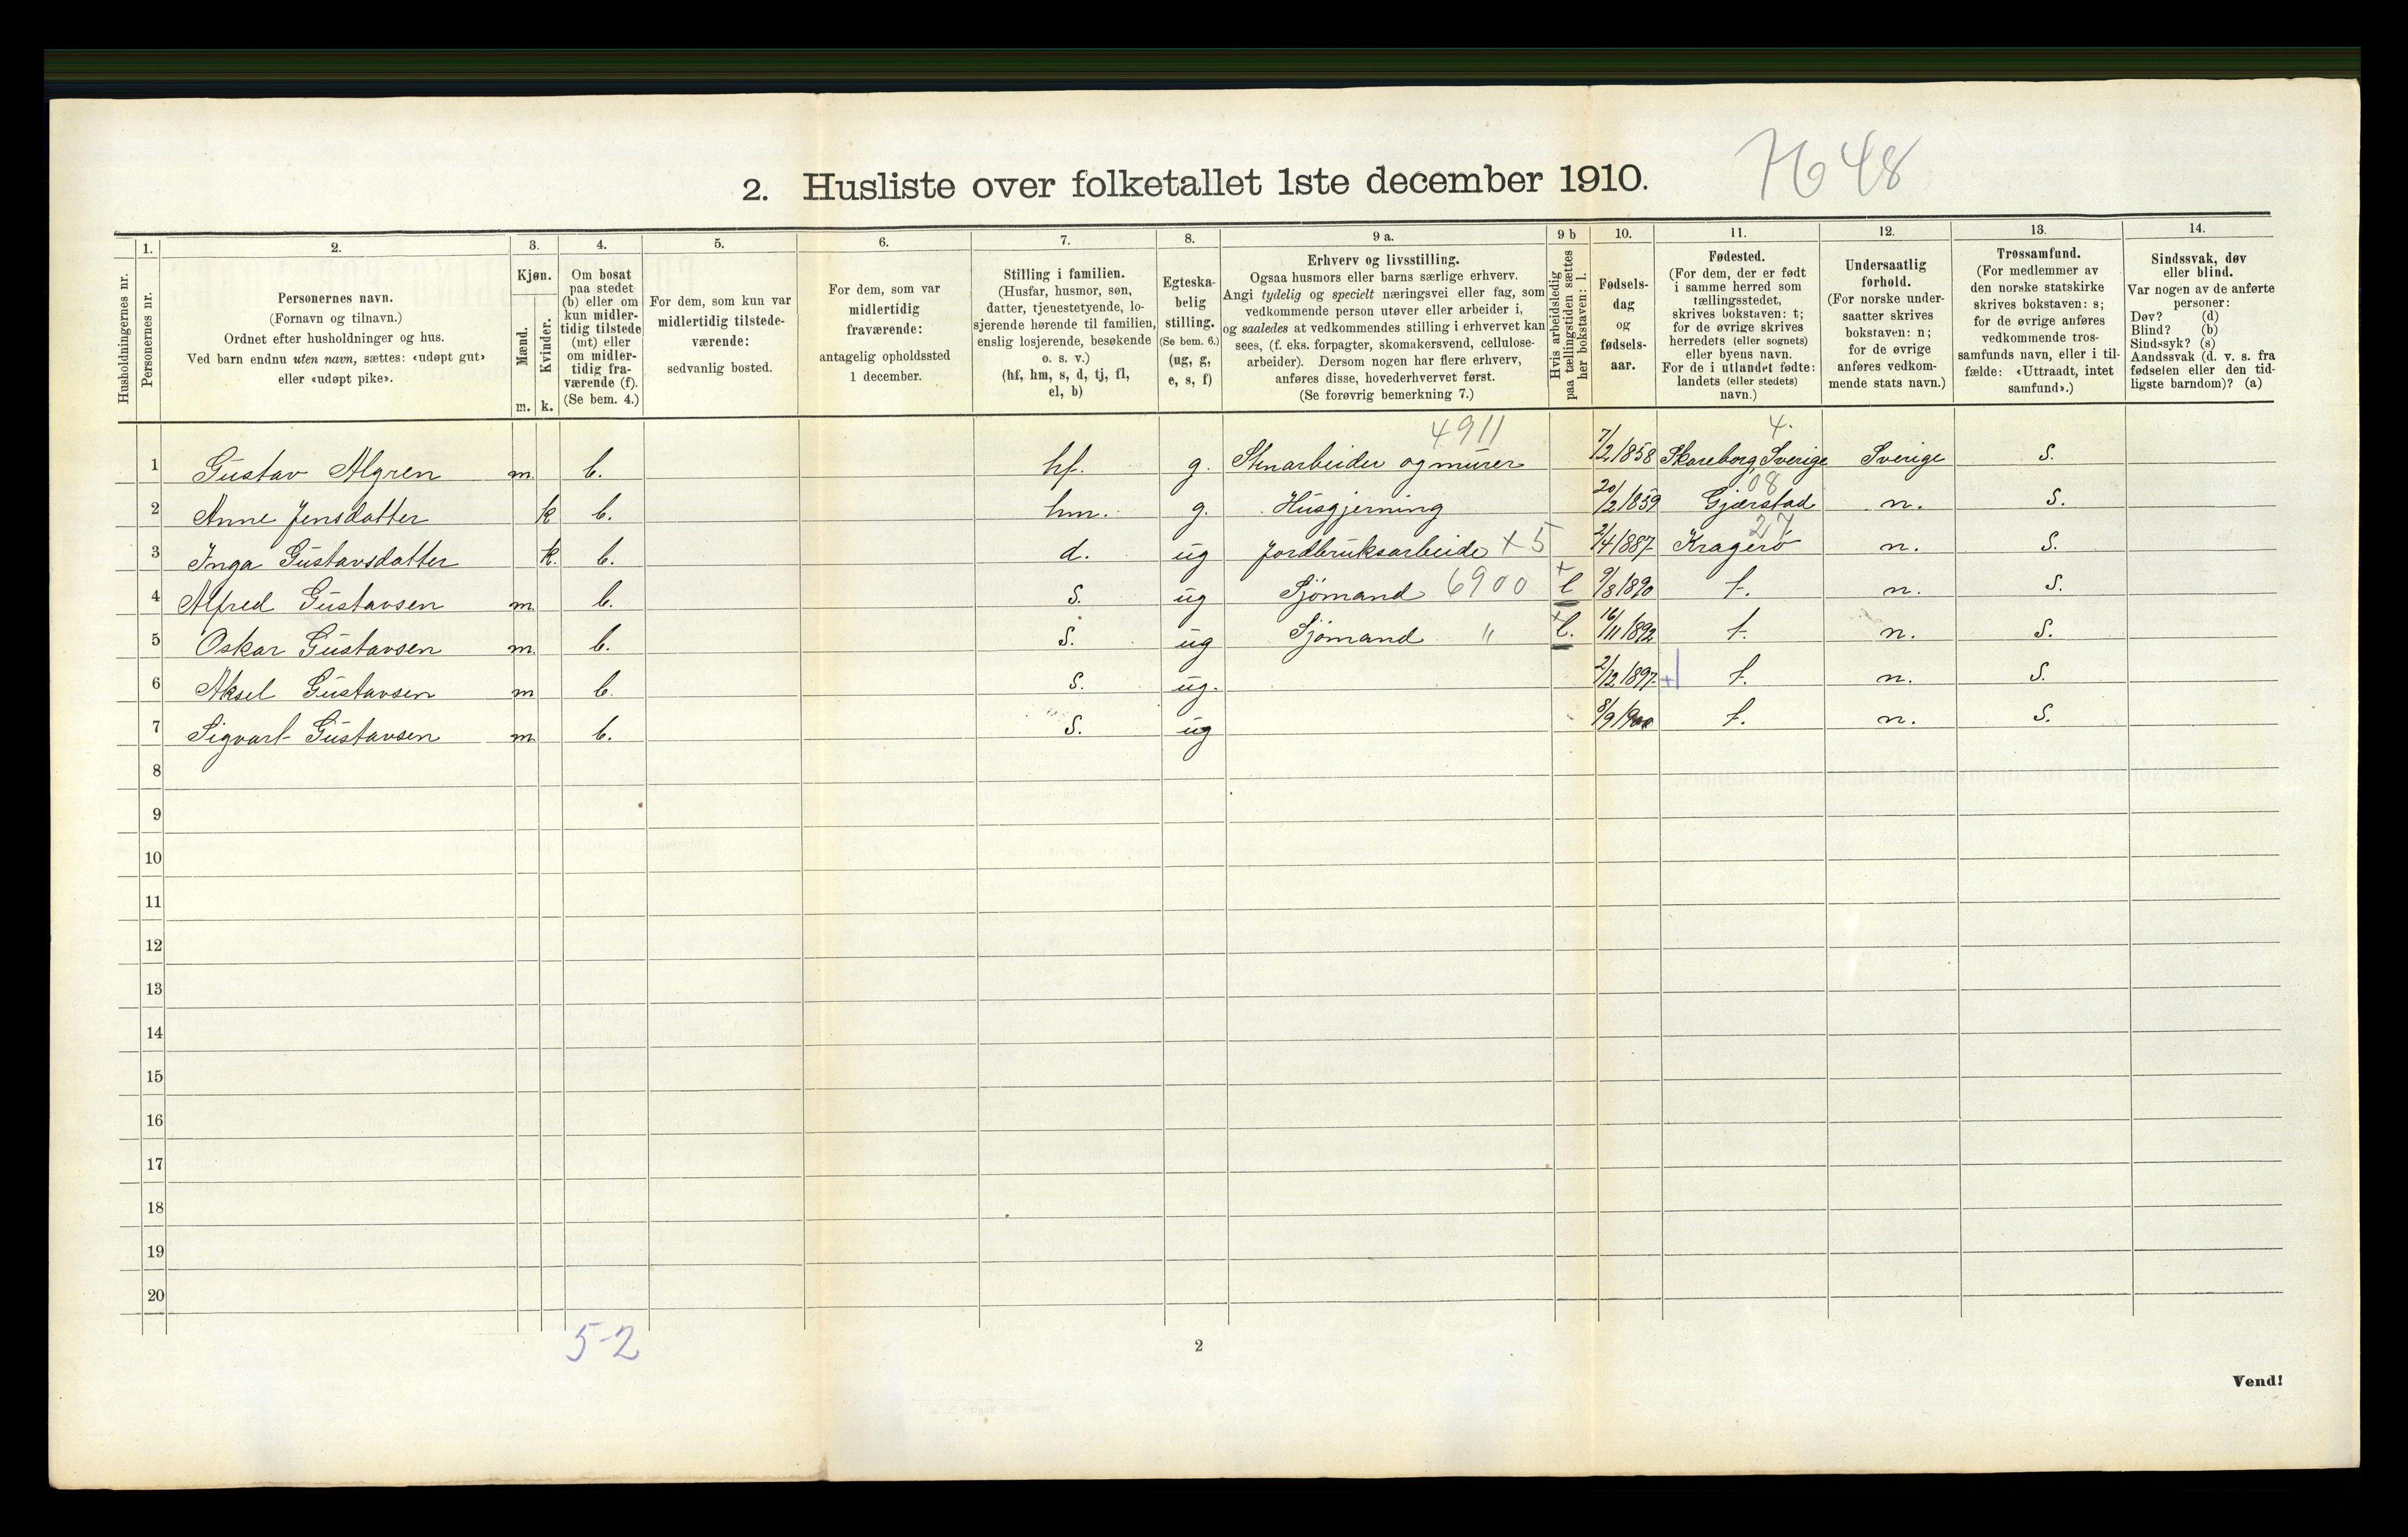 7648
2. Husliste over folketallet 1ste december 1910.
Husholdningernes nr.
1. Personernes nr.
2. Personernes navn.
(Fornavn og tilnavn.)
Ordnet efter husholdninger og hus.
Ved barn endnu uten navn, sættes: «udøpt gut»
eller «udøpt pike».
3. Kjøn.
Mænd. m.
Kvinder. k.
4. Om bosat
paa stedet
(b) eller om
kun midler-
tidig tilstede
(mt) eller
om midler-
tidig fra-
værende (f).
(Se bem. 4.)
5. For dem, som kun var
midlertidig tilstede-
værende:
sedvanlig bosted.
6. For dem, som var
midlertidig
fraværende:
antagelig opholdssted
1 december.
7. Stilling i familien.
(Husfar, husmor, søn,
datter, tjenestetyende, lo-
sjerende hørende til familien,
enslig losjerende, besøkende
o. s. v.)
(hf, hm, s, d, tj, fl,
el, b)
8. Egteska-
belig
stilling.
(Se bem. 6.)
(ug, g,
e, s, f)
9 a. Erhverv og livsstilling.
Ogsaa husmors eller barns særlige erhverv.
Angi tydelig og specielt næringsvei eller fag, som
vedkommende person utøver eller arbeider i,
og saaledes at vedkommendes stilling i erhvervet kan
sees, (f. eks. forpagter, skomakersvend, cellulose-
arbeider). Dersom nogen har flere erhverv,
anføres disse, hovederhvervet først.
(Se forøvrig bemerkning 7.)
9 b Hvis arbeidsledig
paa tællingstiden sættes
her bokstaven: l.
10. Fødsels-
dag
og
fødsels-
aar.
11. Fødested.
(For dem, der er født
i samme herred som
tællingsstedet,
skrives bokstaven: t;
for de øvrige skrives
herredets (eller sognets)
eller byens navn.
For de i utlandet fødte:
landets (eller stedets)
navn.)
12. Undersaatlig
forhold.
(For norske under-
saatter skrives
bokstaven: n;
for de øvrige
anføres vedkom-
mende stats navn.)
13. Trossamfund.
(For medlemmer av
den norske statskirke
skrives bokstaven: s;
for de øvrige anføres
vedkommende tros-
samfunds navn, eller i til-
fælde: «Uttraadt, intet
samfund».)
14. Sindssvak, døv
eller blind.
Var nogen av de anførte
personer:
Døv? (d)
Blind? (b)
Sindssyk? (s)
Aandssvak (d. v. s. fra
fødselen eller den tid-
ligste barndom)? (a)
4911 4.
1 Gustav Algren m. b. hf. g. Stenarbeider og murer 7/2 1858 Skareborg, Sverige Sverige s.
08
2 Anne Jensdatter k b. hm. g. Husgjerning 20/2 1859 Gjerstad n. s.
27
3 Inga Gustavsdatter k. b. d. ug Jordbruksarbeide x5 2/4 1887 Kragerø n. s.
4 Alfred Gustavsen m. b. s. ug Sjømand 6900 + l 9/8 1890 t. n. s.
5 Oskar Gustavsen m. b. s. ug Sjømand " + l. 16/11 1892 t. n. s.
6 Aksel Gustavsen m b. s. ug. 2/12 1897 + t. n. s.
7 Sigvart Gustavsen m b. s. ug 8/9 1900 t. n. s.
8
9
10
11
12
13
14
15
16
17
18
19
20
5-2
2
Vend!